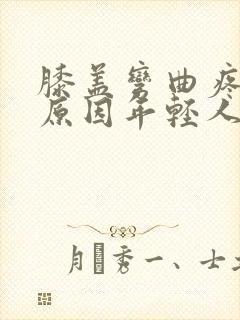 膝盖弯曲疼
原因年轻人
秀一、士